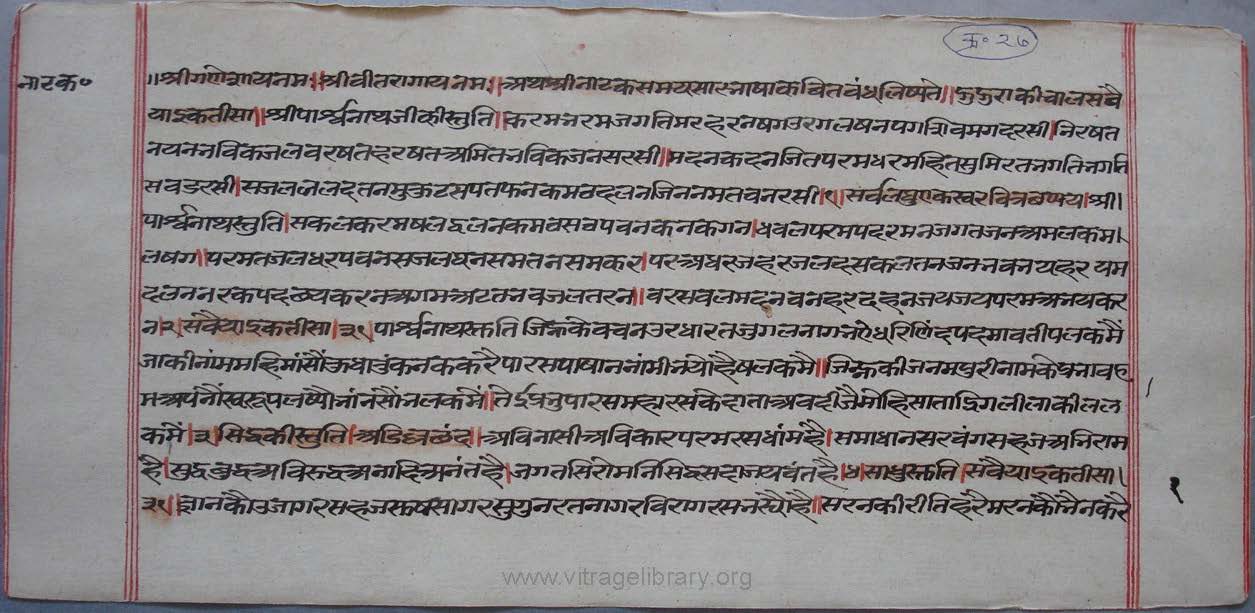 क्र॰ २७
नाटक॰
॥श्रीगणेशायनमः॥श्रीवीतरागायनमः॥अथश्रीनाटकसमयसारभाषाकवितबंधलिष्यते॥झुझुराकीचालसवै
याइकतीसा॥श्रीपार्श्वनाथजीकीस्तुति॥करमभरमजगतिमरहरनषगउरगलषनपगशिवमगदरसी।निरषत
नयनभविकजलवरषतहरषतअमितभविकजनसरसी॥मदनकदनजितपरमधरमहितसुमिरतभगतिभगति
सबडरसी।सजलजलदतनमुकुटसपतफनकमठदलनजिननमतबनरसी।१।सर्वलघुएकस्वरचित्रछप्पय।श्री।
पार्श्वनाथस्तुति।सकलकरमषलदलनकमठसठपवनकनकनग।धवलपरमपदरमनजगतजनअमलकमल।
लषग॥परमतजलधरपवनसजलघनसमतनसमकर।परअघरजहरजलदसकलजननतभवभयहर यम
दलननरकपदछयकरनअगमअटतभवजलतरन॥वरसबलमदनवनहरदहनजयजयपरमअभयकर
न।२।सवैयाइकतीसा।३१।पार्श्वनाथस्तुति जिन्हकैवचनउरधारतजुगलनागभएधरिणिंदपदमावतीपलकमैं
जाकीनांममहिमांसौंकुधाउंकनककरैपारसपाषाननांमीभयोहैषलकमै॥जिन्हकीजनमपुरीनामकेप्रभावह
मअपनौंस्वरूपलष्यौभांनसौंभलकमैं।तेईप्रभुपारसमहारसकेदाताअबदीजैमोहिसाताद्रिगलीलाकीलल
कमैं।३।सिद्धकीस्तुति।अडिल्लछंद।अविनासीअविकारपरमरसधांमहै।समाधानसरवंगसहजअभिराम
है।सुद्धबुद्धअविरुद्धअनादिअनंतहै।जगतसिरोमनिसिद्धसदाजयवंतहै।४।साधुस्तुति।सवैयाइकतीसा।
३१।ज्ञानकौउजागरसहजसुषसागरसुगुनरतनागरविरागरसभस्यौहै॥सरनकीरीतिहरैमरनकौभैनकरै
१
www.vitragelibrary.org